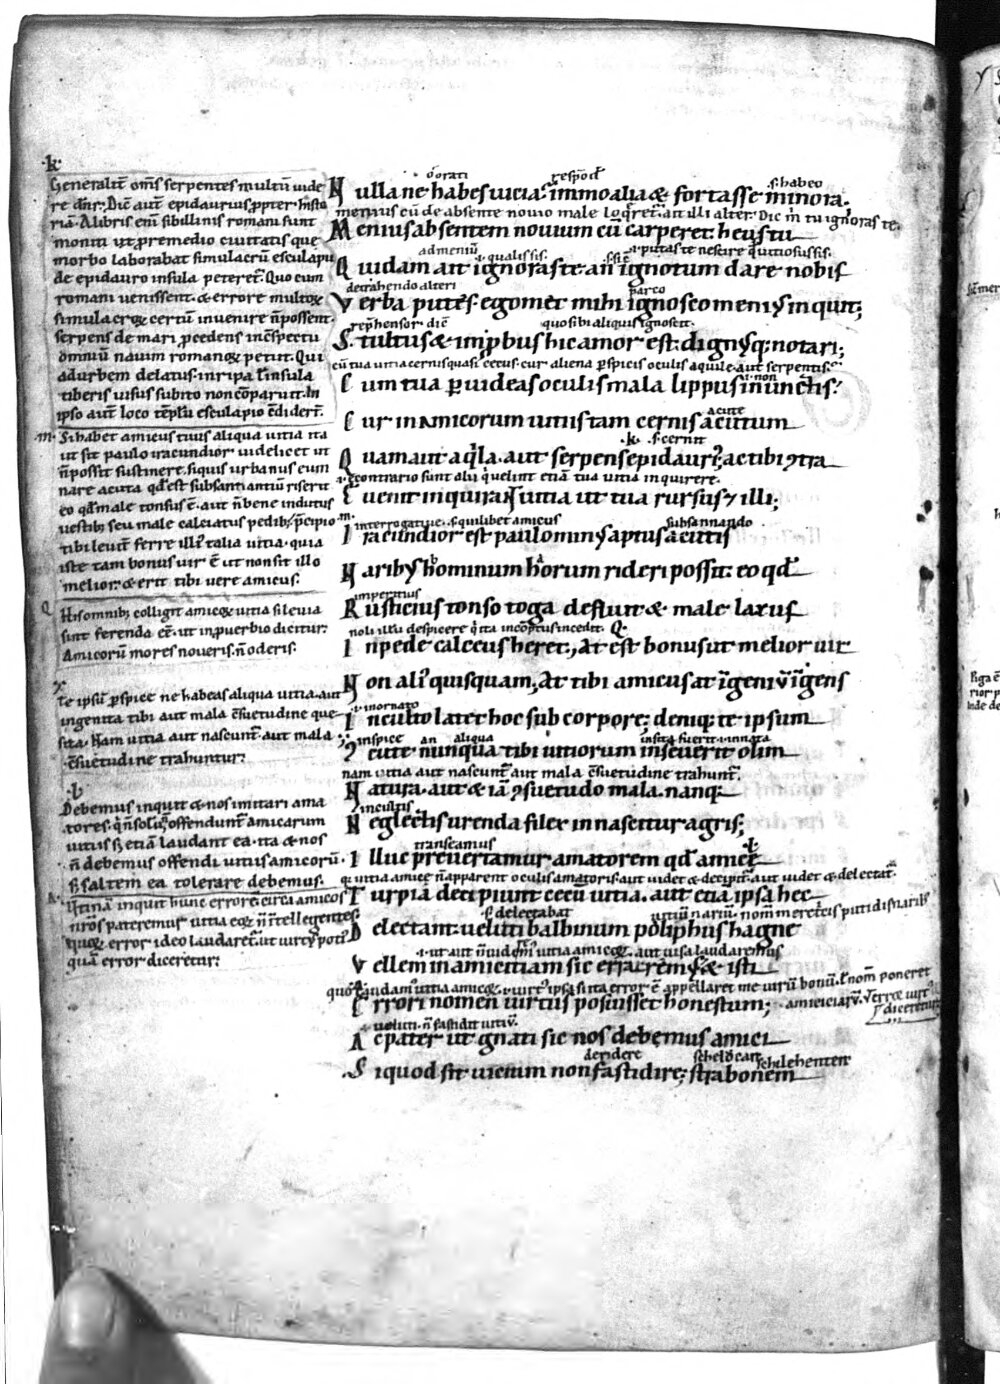 ·k·
Generalit̄ om̄s serpentes multū uide
re dn̄r. Dic̄ aut̄ epidaurius ꝓpter histo
riā. A libris enī sibillinis romani sunt
moniti ut ꝓ remedio ciuitatis que
morbo laborabat simulacrū esculapii
de epidauro insula peteret̄. Quo cum
romani uenissent. & errore multoꝝ
simulacroꝝ certū inuenire n̄ possent.
serpens de mari ꝓcedens inc̄spectu
omniū nauim romanoꝝ petiit. Qui
ad urbem delatus. in ripa ł insula
tiberis uisus subito non cōparuit. In
ipso aut̄ loco tēplū esculapio c̄dider̄t.
·m· Si habet amicus tuus aliqua uitia ita
ut sit paulo iracundior uidelicet ut
n̄ possit sustinere. si quis urbanus eum
nare acuta qd̄ est subsannantiū riserit
eo qd̄ male tonsus ē. aut n̄ bene indutus
uestibꝫ seu male calciatus pedibꝫ. p̄cipio
tibi leuit̄ ferre illiꝰ talia uitia. quia
iste tam bonus uir ē ut non sit illo
melior. & erit tibi uere amicus.
Q His omnibꝫ colligit amicoꝝ uitia si leuia
sint ferenda ēē. ut in ꝓuerbio dicitur:
Amicorū mores noueris. n̄ oderis.
Te ipsū ꝑspice ne habeas aliqua uitia. aut
ingenita tibi aut mala c̄suetudine que
sita. Nam uitia aut nascunt̄ aut mala
c̄suetudine trahuntur.
·b·
Debemus inquit & nos imitari ama
tores. q̄ n̄ solū n̄ offendunt̄ amicarum
uitiis sꝫ etiā laudant ea. ita & nos
n̄ debemus offendi uitiis amicorū.
sꝫ saltem ea tolerare debemus.
Utinā inquit hunc errorē circa amicos
nr̄os pateremur uitia eoꝝ n̄ intellegentes.
quoꝝ error ideo laudaret̄. ut uirtꝰ potiꝰ
quā error diceretur.
orati respōd̄ .s. habeo
N ullane habes uicia; immo alia & fortasse minora.
menius cū de absente nouio male loq̄ret̄. ait illi alter. Dic m̄ tu ignoras te.
M enius absentem nouium cū carperet. heus tu
ad meniū .i. qualis sis. .s. sic̄ .i. putas te nescire q̄ uitiosus sis.
Q uidam ait ignoras te. an̄ ignotum dare nobis
detrahendo alteri parco
V erba putes. egomet mihi ignosco meniꝰ inquit;
rep̄hensor. dic̄ quo sibi aliquis ignoscit.
S tultus & imꝓbus hic amor est. dignꝰq; notari;
cū tua uitia cernis quasi cecus. cur aliena ꝑspicis oculis aquile. aut serpentis.
C um tua ꝑuideas oculis mala lippus inunctis?
acute
C ur in amicorum uitiis tam cernis acutum
.k. .s. cernit
Q uam aut aq̄la. aut serpens epidauriꝰ; ac tibi 9tra
.i. econtrario sunt alii q̄ uelint etiā tua uitia inquirere.
E uenit inquirant uitia ut tua rursus & illi;
.m. interrogatiue. .s. quilibet amicus subsannando
I racundior est paulo minꝰ aptus acutis
N aribꝰ hominum horum rideri possit. eo qd̄
imperitius
R usticius tonso toga defluit. & male laxus
noli illū despicere q̄ ita incōptus incedit. Q.
I n pede calceus heret., At est bonus ut melior uir
N on aliꝰ quisquam, At tibi amicus. at īgeniū īgens
.i. inornato
I nculto latet hoc sub corpore; deniq; te ipsum
inspice an aliqua insita fuerit .i. innata
9 cute nunqua tibi uitiorum inseuerit olim
nam uitia aut nascunt̄ aut mala c̄suetudine trahunt̄.
N atura. aut & iā 9suetudo mala. nanq;
incultis
N eglectis urenda filex innascitur agris;
transeamus ·b·
I lluc preuertamur. amatorem qd̄ amicę
q; uitia amicę n̄ apparent oculis amatoris. aut uidet & decipit̄. aut uidet & delectat̄.
T urpia decipiunt cecū uitia. aut etiā ipsa hec
.s. delectabat uitiū nariū. nom̄ meretricis putidis naribꝰ
D electant. ueluti balbinum poliphus hagne
.i. ut aut n̄ uiderem̄ uitia amicoꝝ. aut uisa laudaremus
V ellem in amicitiam sic erraremꝰ. & isti
E rrori nomen uirtus posuisset honestum;
ueluti. n̄ fastidit uitiū.
A c pater ut gnati sic nos debemus amici
deridere
S iquod sit uicium non fastidire; strabonem
schilehenten